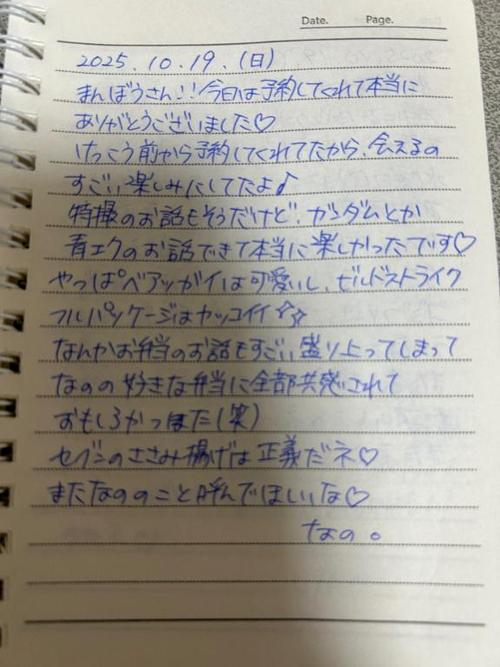 Date. Page.
2025.10.19.(日)
まんぼうさん!!今日は予約してくれて本当に
ありがとうございました♡
けっこう前から予約してくれてたから、会えるの
すごい楽しみにしてたよ♪
特撮のお話もそうだけど、ガンダムとか
青エクのお話できて本当に楽しかったです♡
やっぱベアッガイは可愛いし、ビルドストライク
フルパッケージはカッコイイ☆☆
なんかお弁当のお話もすごい盛り上ってしまって
なのの好きな弁当に全部共感されて
おもしろかつほた(笑)
セブンのささみ揚げは正義だネ♡
またなののこと呼んでほしいな♡
なの。